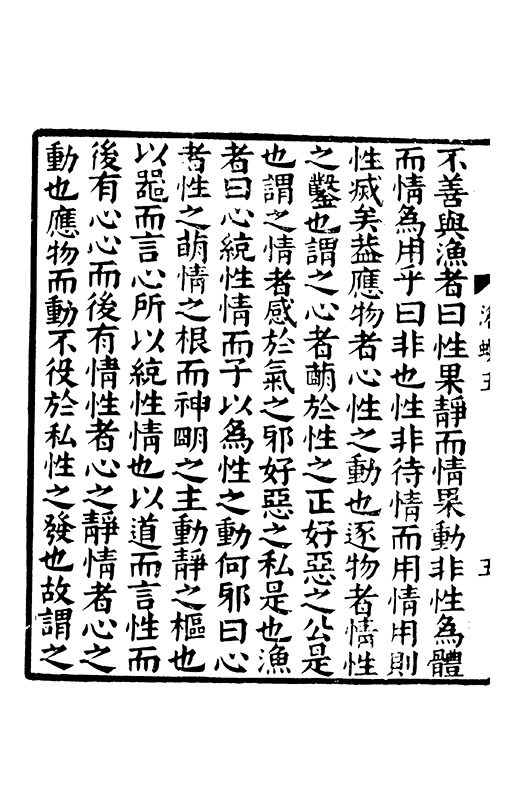 不善與漁者曰性果靜而情果動非性為體
而情為用乎曰非也性非待情而用情用則
性烕矣葢應物者心性之動也逐物者情性
之鑿也謂之心者萌於性之正好惡之公是
也謂之情者感於氣之邪好惡之私是也漁
者曰心統性情而子以為性之動何邪曰心
者性之萌情之根而神明之主動靜之樞也
以噐而言心所以統性情也以道而言性而
後有心心而後有情性者心之靜情者心之
動也應物而動不役於私性之發也故謂之
五
五